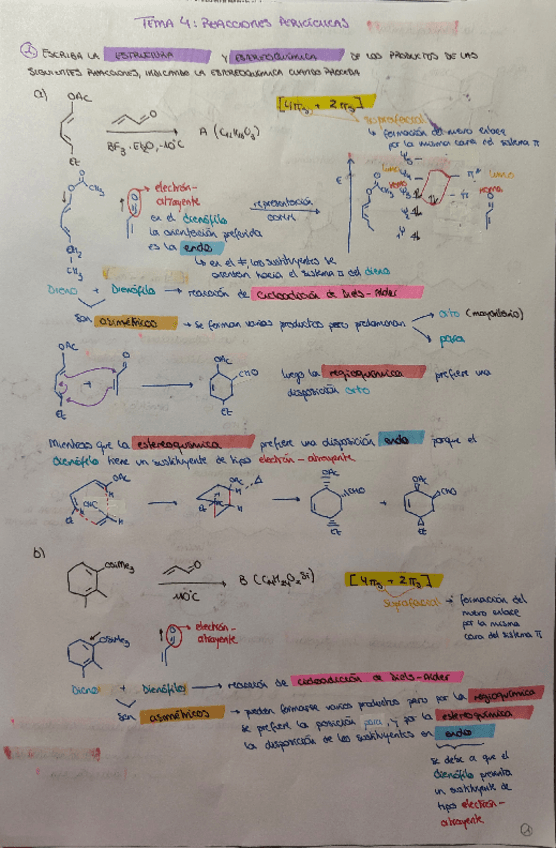 TEMA 4: REACCIONES PERICÍCLICAS
1 ESCRIBA LA ESTRUCTURA Y ESTEREOQUÍMICA DE LOS PRODUCTOS DE LAS
SIGUIENTES REACCIONES, INDICANDO LA ESTEREOQUÍMICA CUANDO PROCEDA
a)
OAc
Et
BF3·Et2O, -10°C
[4πs + 2πs]
suprafacial
↳ formación del nuevo enlace
por la misma cara del sistema π
CH3
CH2
CH3
electrón-
atrayente
en el dienófilo
la orientación preferida
es la endo
↳ en el los sustituyentes se
orientan hacia el sistema π del dieno
representación
E
LUMO
HOMO
Dieno + Dienófilo → reacción de cicloadición de Diels-Alder
Son asimétricos → se forman varios productos pero predominan
orto (mayoritario)
para
OAc
Et
O
OAc
CHO
Et
luego la regioquímica prefiere una
disposición orto
Mientras que la estereoquímica prefiere una disposición endo porque el
dienófilo tiene un sustituyente de tipo electrón-atrayente
OAc
CHO
Et
H
OAc
OAc
CHO
Et
+
OAc
CHO
Et
b)
OSiMe3
110°C
[4πs + 2πs]
suprafacial → formación del
nuevo enlace
por la misma
cara del sistema π
OSiMe3
electrón-
atrayente
Dieno + Dienófilo → reacción de cicloadición de Diels-Alder
Son asimétricos → pueden formarse varios productos pero por la regioquímica
se prefiere la posición para, y por la estereoquímica
la disposición de los sustituyentes en endo
se debe a que el
dienófilo presenta
un sustituyente de
tipo electrón-
atrayente
1